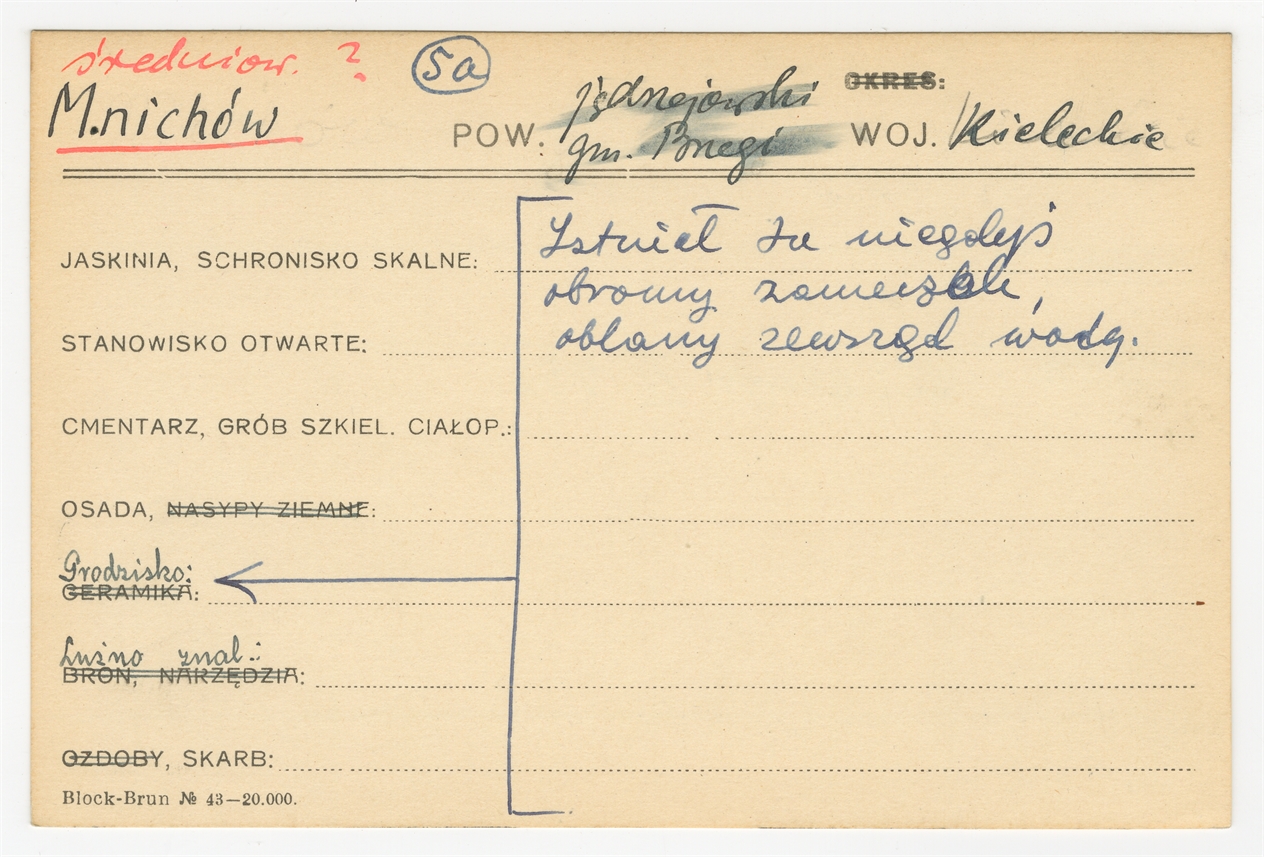 średniow. ?
5a
Mnichów
POW. jędrzejowski
gm. Brzegi
OKRES:
WOJ. Kieleckie
JASKINIA, SCHRONISKO SKALNE:
Istniał tu niegdyś
obronny zameczek,
STANOWISKO OTWARTE:
oblany zewsząd wodą.
CMENTARZ, GRÓB SZKIEL. CIAŁOP.:
OSADA, NASYPY ZIEMNE:
Grodzisko:
CERAMIKA:
Luźno znal.:
BROŃ, NARZĘDZIA:
OZDOBY, SKARB:
Block-Brun № 43—20.000.